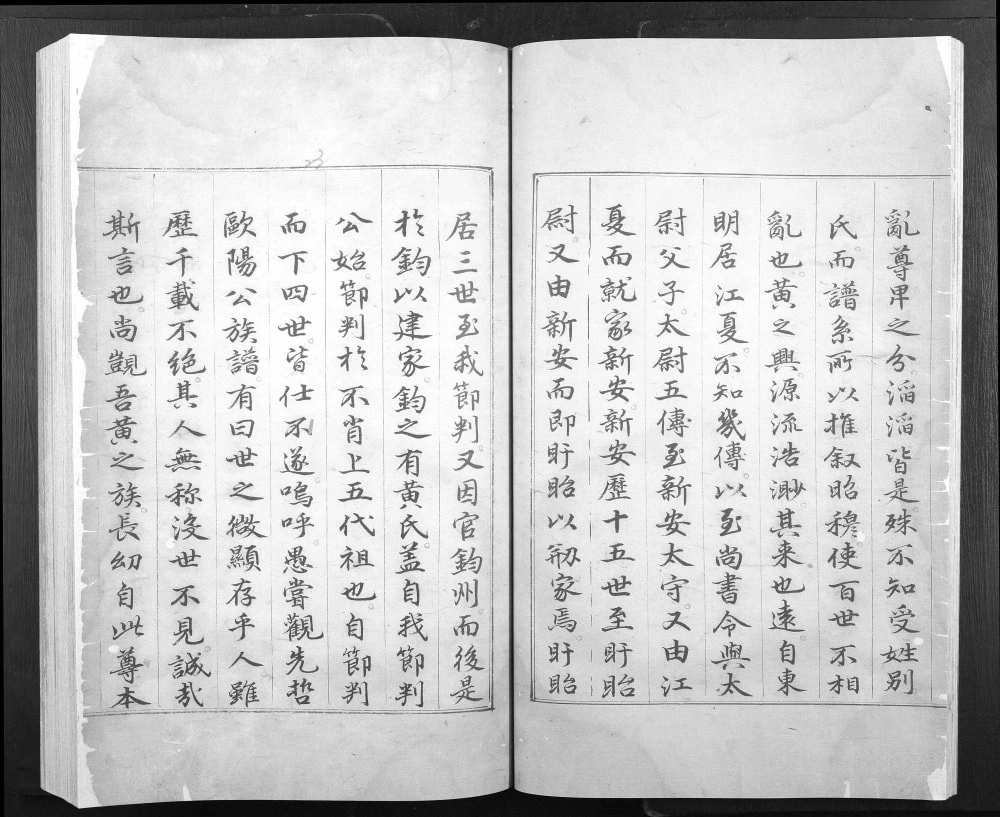 亂尊卑之分滔滔皆是殊不知受姓别
氏而譜系所以推叙昭穆使百世不相
亂也黄之興源流浩渺其来也遠自東
明居江夏不知幾傳以至尚書令與太
尉父子太尉五傳至新安太守又由江
夏而就家新安新安歷十五世至盱眙
尉又由新安而即盱眙以剏家焉盱眙
居三世至我節判又因官鈞州而後是
於鈞以建家鈞之有黄氏盖自我節判
公始節判於不肖上五代祖也自節判
而下四世皆仕不遂嗚呼愚嘗觀先哲
歐陽公族譜有曰世之微顯存乎人雖
歷千載不絶其人無称没世不見誠哉
斯言也尚覬吾黄之族長㓜自此尊本